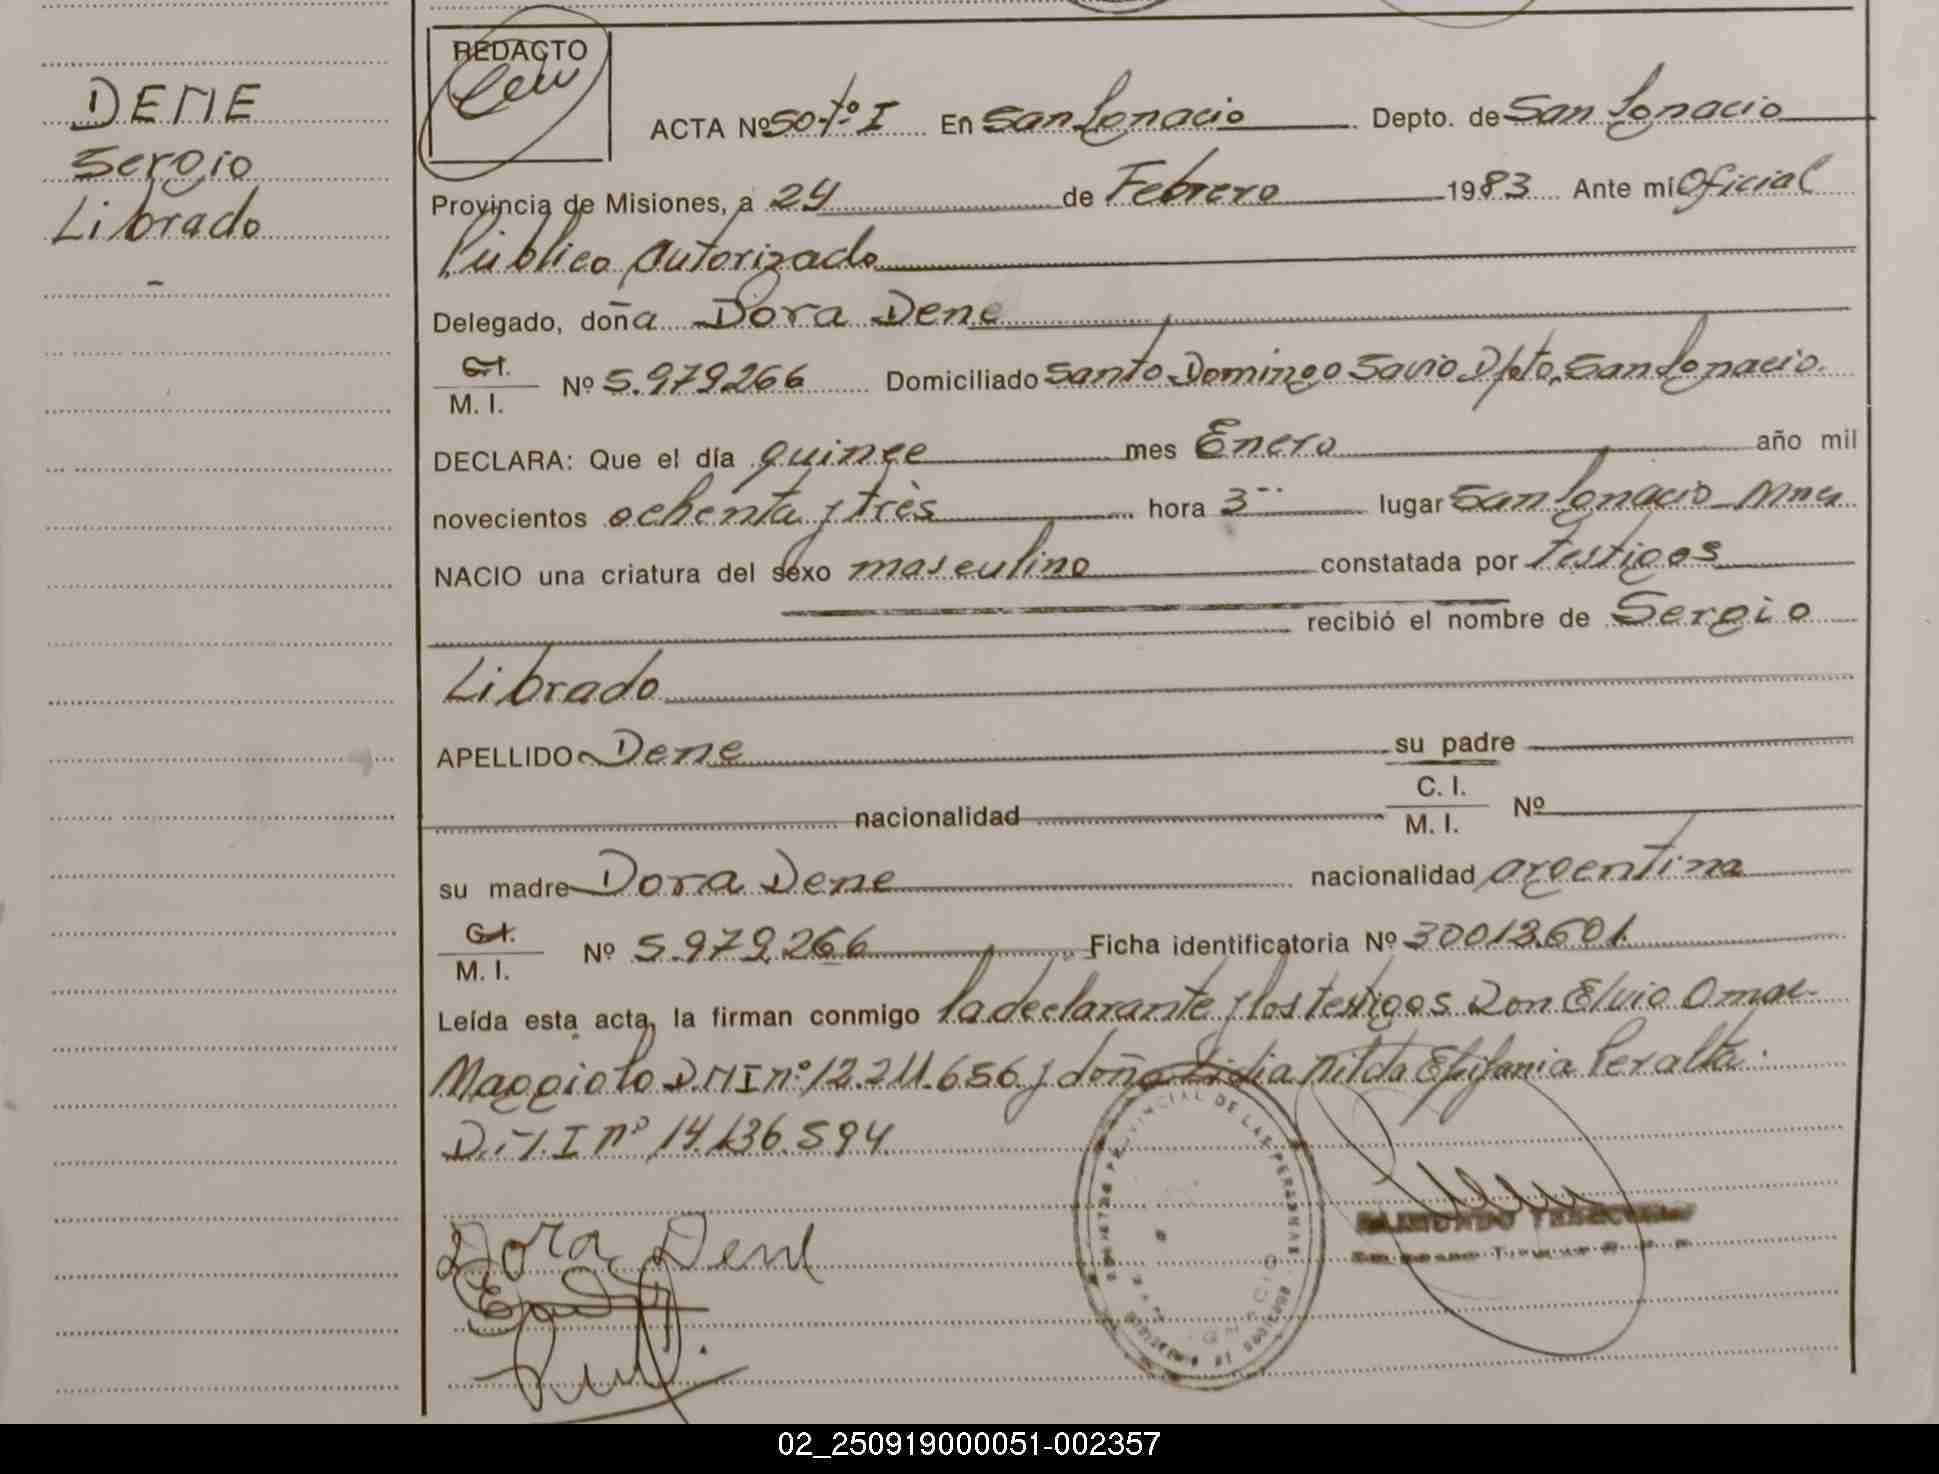 DENE
Sergio
Librado
REDACTO
ACTA Nº 50 Tº I En San Ignacio Depto. de San Ignacio
Provincia de Misiones, a 24 de Febrero 1983 Ante mí Oficial
Publico Autorizado
Delegado, doña Dora Dene
C.I. M. I. Nº 5.979.266 Domiciliado Santo Domingo Savio Dpto. San Ignacio.
DECLARA: Que el día quince mes Enero año mil
novecientos ochenta y très hora 3 lugar San Ignacio Mnes
NACIO una criatura del sexo masculino constatada por testigos
recibió el nombre de Sergio
Librado
APELLIDO Dene su padre
nacionalidad C. I. M. I. Nº
su madre Dora Dene nacionalidad argentina
C.I. M. I. Nº 5.979.266 Ficha identificatoria Nº 30013.601
Leída esta acta, la firman conmigo la declarante y los testigos Don Elvio Omar
Maggiolo D.N.I nº 12.211.656 y doña Lidia Nilda Epifania Peralta
D.N.I nº 14.136.594
Dora Dene
PROVINCIAL DE LAS PERSONAS
RAIMUNDO
02_250919000051-002357